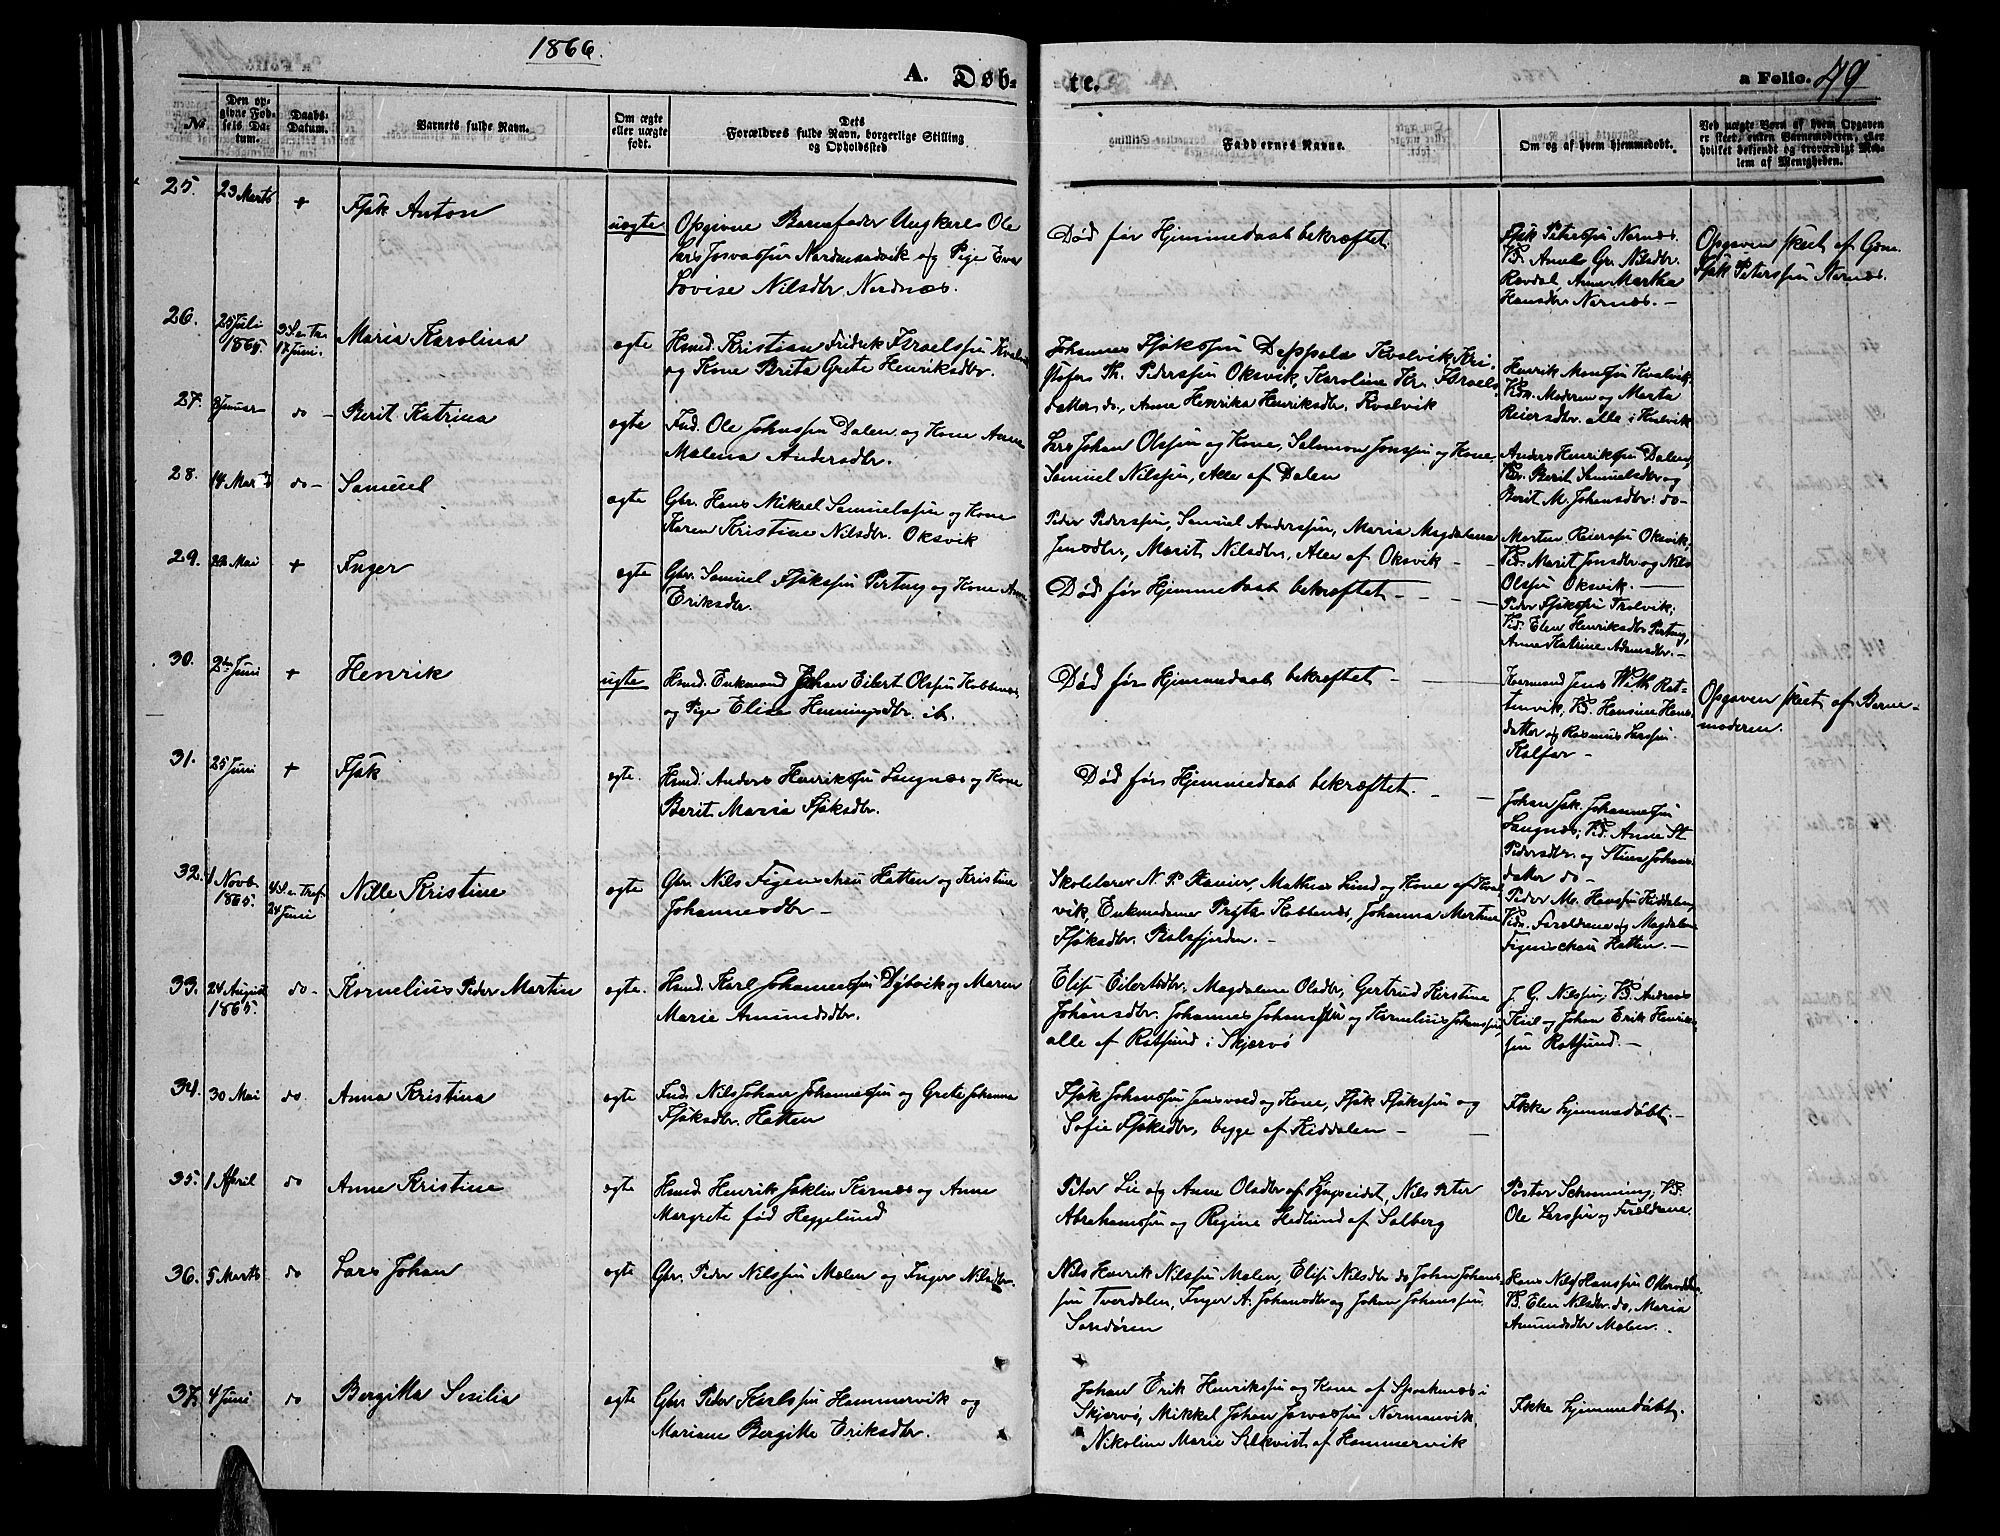 1866.
A. Døb-
te.
a Folio. 49
No.
Den op-
givne Fød-
sels Da-
tum.
Daabs-
Datum.
Barnets fulde Navn.
Om ægte
eller uægte
født.
Dets
Forældres fulde Navn, borgerlige Stilling
og Opholdssted
Faddernes Navne.
Om og af hvem hjemmedøbt.
Ved uægte Børn af hvem Opgaven
er skeet, enten Barnemoderen, eller
hvilket bekjendt og troværdigt Med-
lem af Menigheden.
25. 23 Marts + Isak Anton uægte
Opgivne Barnefader Ungkarl Ole
Lars Josvassen Nordmandvik og Pige Eva
Lovise Nilsdtr Nordnæs.
Død før Hjemmedaab bekræftet
Isak Peterssen Nornæs.
Vd. Annels Gr. Nilsdtr.
Rovdal, Anne Martha
Hansdtr Nornæs. —
Opgaven skeet af Gbm.
Isak Peterssen Nornæs.
26. 25 Juli
1865. 3 S. e. Tr.
17 Juni. Maria Karolina ægte
Hmd. Kristian Fredrik Israelssen Kvalvik
og Kone Brita Grete Henriksdtr.
Johannes Isakssen Deppola Kvalvik, Kri-
stofer Th. Pederssen Oksvik, Karoline Kr. Israels-
datter do., Anne Henrika Henriksdtr. Kvalvik
Henrik Monssen Kvalvik,
Vdn. Moderen og Marta
Reiersdtr. alle i Kvalvik
27. 8 Januar do - Berit Katrina ægte
Ind. Ole Johnssen Dalen og Kone Anne
Malena Andersdtr.
Lars Johan Olssen og Kone, Salomon Jonssen og Kone,
Samuel Nilssen, Alle af Dalen
Anders Henrikssen Dalen,
Vdr. Berit Samuelsdtr og
Berit M. Johansdtr. do-
28. 14 Marts do - Samuel ægte
Gbr. Hans Mikael Samuelssen og Kone
Karen Kristine Nilsdtr. Oksvik
Peder Pederssen, Samuel Anderssen, Maria Magdalena
Jensdtr, Marit Nilsdtr, Alle af Oksvik -
Morten Reierssen Oksvik,
Vd. Marit Jonsdtr og Nils
Olssen Oksvik.
29. 22 Mai + Inger ægte
Gbr. Samuel Isakssen Pertung og Kone Anne
Eriksdtr.
Død før Hjemmedaab bekræftet - - -
Peder Isakssen Trolvik;
Vid. Elen Henriksdtr Pertung,
Anne Katrine Adamsdtr. -
30. 2den Juni + Henrik uægte
Hmd. Enkmand Johan Eilert Olssen Kobbenes
og Pige Elise Henningsdtr. ib.
Død før Hjemmedaab bekræftet -
Kvarmand Jens With Rot-
tenvik, Vd. Hansine Hans-
datter og Rasmus Larssen
Kalfar -
Opgaven skeet af Barne-
moderen.
31. 25 Juni + Isak ægte.
Hmd. Anders Henrikssen Langnæs og Kone
Berit Maria Isaksdtr.
Død før Hjemmedaab bekræftet. - -
Johan Isak Johannessen
Langnæs, Vd. Anne St
Pedersdtr. og Stina Johans-
datter do -
32. 4 Novb.
1865. 4 S. e. Tref.
24 Juni Nille Kristine ægte
Gbr. Nils Figenschau Hatten og Kristine
Johannesdtr -
Skolelærer N. P. Stavier, Mathis Lund og Kone af Kval
vik, Enkmadame Pryts Kobbenes, Johanna Martine
Isaksdtr. Balsfjorden. -
Peder Mo. Hanssen Kiddalen,
Vdn. Forældrene og Magdalene
Figenschau Hatten. -
33. 24 August
1865. do - Kornelius Peder Martin ægte.
Hmd. Karl Johannessen Dybvik og Maren
Marie Amundsdtr.
Elise Eilertsdtr, Magdalene Olsdtr, Gertrud Kirstine
Johansdtr. Johannes Johanssen og Kornelius Johanssen
alle af Rotsund i Skjervø
J. G. Nilssen, Vd. Andreas
Kiil og Johan Erik Henrik-
sen Rotsund. -
34. 30 Mai do. Anna Kristina ægte
Ind. Nils Johan Johannessen og Grete Johanna
Isaksdtr. Hatten
Isak Johanssen Jensvold og Kone, Isak Isakssen og
Sofie Isaksdtr, begge af Kiddalen - -
Ikke hjemmedøbt. -
35. 1 April do Anne Kristine ægte
Hmd. Henrik Jaklin Karnæs og Anne
Margrete fød Heggelund
Peter Lie og Anne Olsdtr af Lyngseidet, Nils Peter
Abrahamssen og Regine Hedlund af Solberg
Pastor Schrøning, Vd.
Ole Larssen og Forældrene.
36. 5 Marts do Lars Johan ægte
Gbr. Peder Nilssen Malen og Inger Nilsdtr.
Nils Henrik Nilssen Malen, Elise Nilsdtr do, John Johans-
sen Tverdalen, Inger A. Johansdtr og Johan Johanssen
Sandøren
Hans Nils Hanssen Olderdalen,
Vd. Elen Nilsdtr. do, Maria
Amundsdtr Malen.
37. 4 Juni do Bergitta Sesilia ægte
Gbr. Peder Karlssen Hammervik og
Mariane Bergitte Eriksdtr.
Johan Erik Henrikssen og Kone af Spaaknæs i
Skjervø, Mikkel Johan Josvassen Normanvik,
Nikoline Marie Selkvist af Hammervik
Ikke hjemmedøbt.